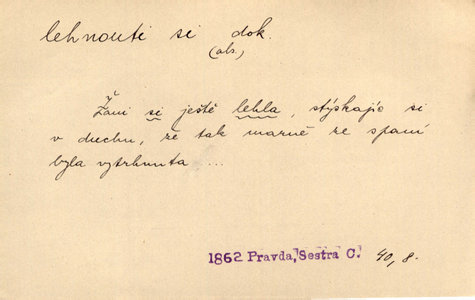 lehnouti si dok.
(abs.)
Žani si ještě lehla, stýskajíc si
v duchu, že tak marně ze spaní
byla vytrhnuta ...
1862 Pravda, Sestra C. 40, 8.